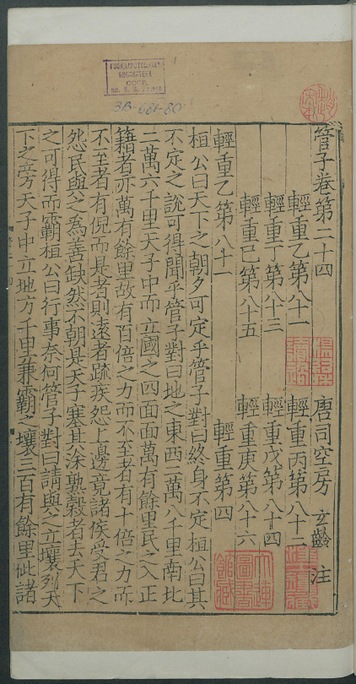 3B-081-80
管子卷第二十四
唐司空房 玄齡 注
輕重乙第八十一 輕重丙第八十二
輕重丁第八十三 輕重戊第八十四
輕重己第八十五 輕重庚第八十六
輕重乙第八十一 輕重第四
桓公曰天下之朝夕可定乎管子對曰終身不定桓公曰其
不定之說可得聞乎管子對曰地之東西二萬八千里南北
二萬六千里天子中而立國之四面面萬有餘里民之入正
籍者亦萬有餘里故有百倍之力而不至者有十倍之力而
不至者有倪而是者則遠者疏疾怨上邊竟諸侯受君之
怨民與之為善缺然不朝是天子塞其涂熟穀者去天下
之可得而霸桓公曰行事奈何管子對曰請與之立壤列天
下之旁天子中立地方千里兼霸之壤三百有餘里佌諸